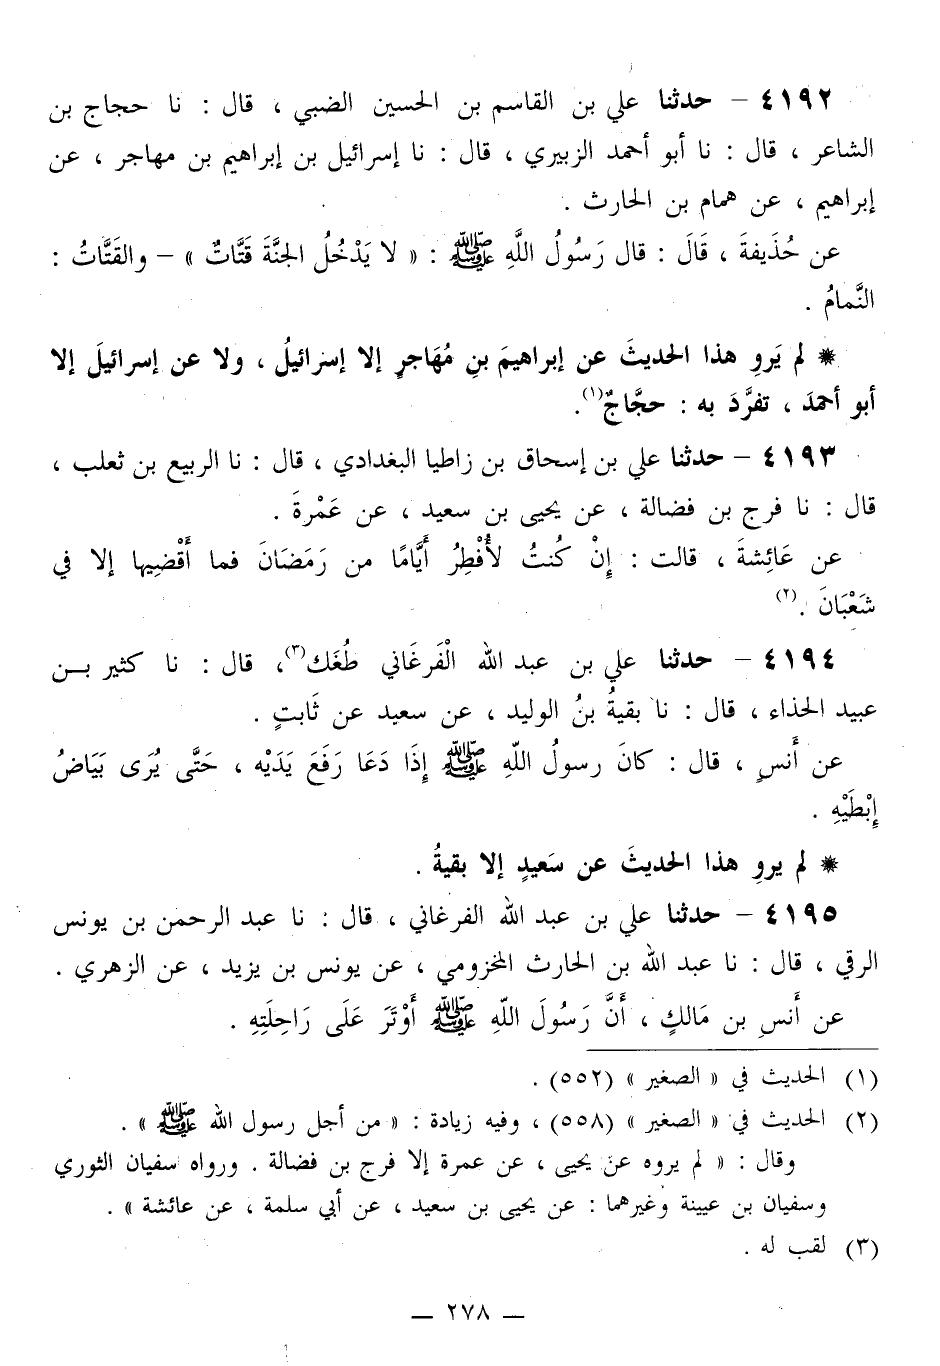 ٤١٩٢ – حدثنا علي بن القاسم بن الحسين الضبي ، قال : نا حجاج بن
الشاعر ، قال : نا أبو أحمد الزبيري ، قال : نا إسرائيل بن إبراهيم بن مهاجر ، عن
إبراهيم ، عن همام بن الحارث .
عن حُذَيفةَ ، قَالَ : قال رَسُولُ اللَّهِ ﷺ : « لا يَدْخُلُ الجنَّةَ قَتَّاتٌ » – والقَتَّاتُ :
النَّمامُ .
* لم يَروِ هذا الحديثَ عن إبراهيمَ بنِ مُهَاجرٍ إلا إسرائيلُ ، ولا عن إسرائيلَ إلا
أبو أحمدَ ، تفرَّدَ به : حجَّاجٌ(١).
٤١٩٣ – حدثنا علي بن إسحاق بن زاطيا البغدادي ، قال : نا الربيع بن ثعلب ،
قال : نا فرج بن فضالة ، عن يحيى بن سعيد ، عن عَمْرةَ .
عن عَائِشةَ ، قالت : إِنْ كُنتُ لأُفْطِرُ أَيَّامًا من رَمَضَانَ فما أَقْضِيها إلا في
شَعْبَانَ .(٢)
٤١٩٤ – حدثنا علي بن عبد الله الْفَرغَاني طُغَك(٣)، قال : نا كثير بـن
عبيد الحذاء ، قال : نا بقيةُ بنُ الوليد ، عن سعيد عن ثَابتٍ .
عن أَنسٍ ، قال : كانَ رسولُ اللّهِ ﷺ إِذَا دَعَا رَفَعَ يَدَيْه ، حَتَّى يُرَى بَيَاضُ
إِبْطَيْهِ .
* لم يروِ هذا الحديثَ عن سَعيدٍ إلا بقيةُ .
٤١٩٥ – حدثنا علي بن عبد الله الفرغاني ، قال : نا عبد الرحمن بن يونس
الرقي ، قال : نا عبد الله بن الحارث المخزومي ، عن يونس بن يزيد ، عن الزهري .
عن أَنسِ بن مَالكٍ ، أَنَّ رَسُولَ اللّهِ ﷺ أَوْتَرَ عَلَى رَاحِلَتِهِ .
(١) الحديث في « الصغير » (٥٥٢) .
(٢) الحديث في « الصغير » (٥٥٨) ، وفيه زيادة : « من أجل رسول الله ﷺ » .
وقال : « لم يروه عن يحيى ، عن عمرة إلا فرج بن فضالة . ورواه سفيان الثوري
وسفيان بن عيينة وغيرهما : عن يحيى بن سعيد ، عن أبي سلمة ، عن عائشة » .
(٣) لقب له .
— ٢٧٨ —